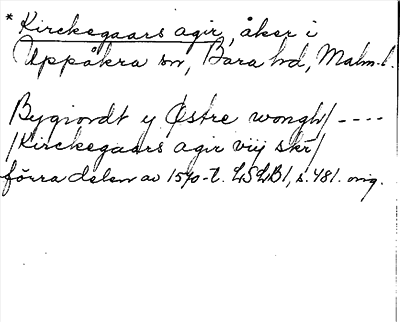 * Kirckegaars agir, åker i
Uppåkra sn, Bara hd, Malm.l.
Bygiordt y Østre wongh/ ----
/Kirckegaars agir viij skr/
förra delen av 1570-t. LSLB1, s. 481. orig.